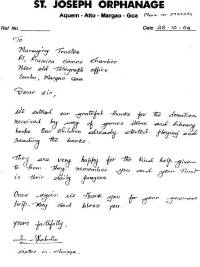 ST. JOSEPH ORPHANAGE
Aquem - Alto - Margao - Goa
Ref No.
Date 28-10-04
To
Managing Trustee
Near old Telegraph office
Margao Goa
Dear Sir,
We extend our grateful thanks for the donation
received by way of games items and library
books. Our children already started playing and
reading the books.
They are very happy for the kind help given
to them. They remember you and your Trust
in their daily prayers.
Once again we thank you for your generous
help. May God bless you.
Yours faithfully,
Sister in charge.